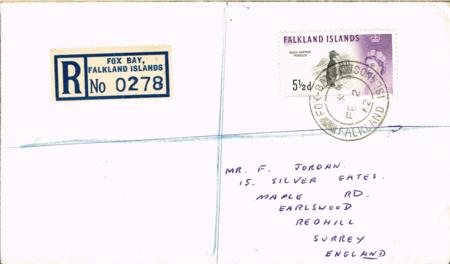 FOX BAY,
FALKLAND ISLANDS
R No 0278
FALKLAND ISLANDS
ROCK-HOPPER
PENGUIN
5½d
FOX BAY
FE 2
62
FALKLAND IS
MR. F. JORDAN.
15. SILVER GATES.
MAPLE RD.
EARLSWOOD
REDHILL
SURREY
ENGLAND